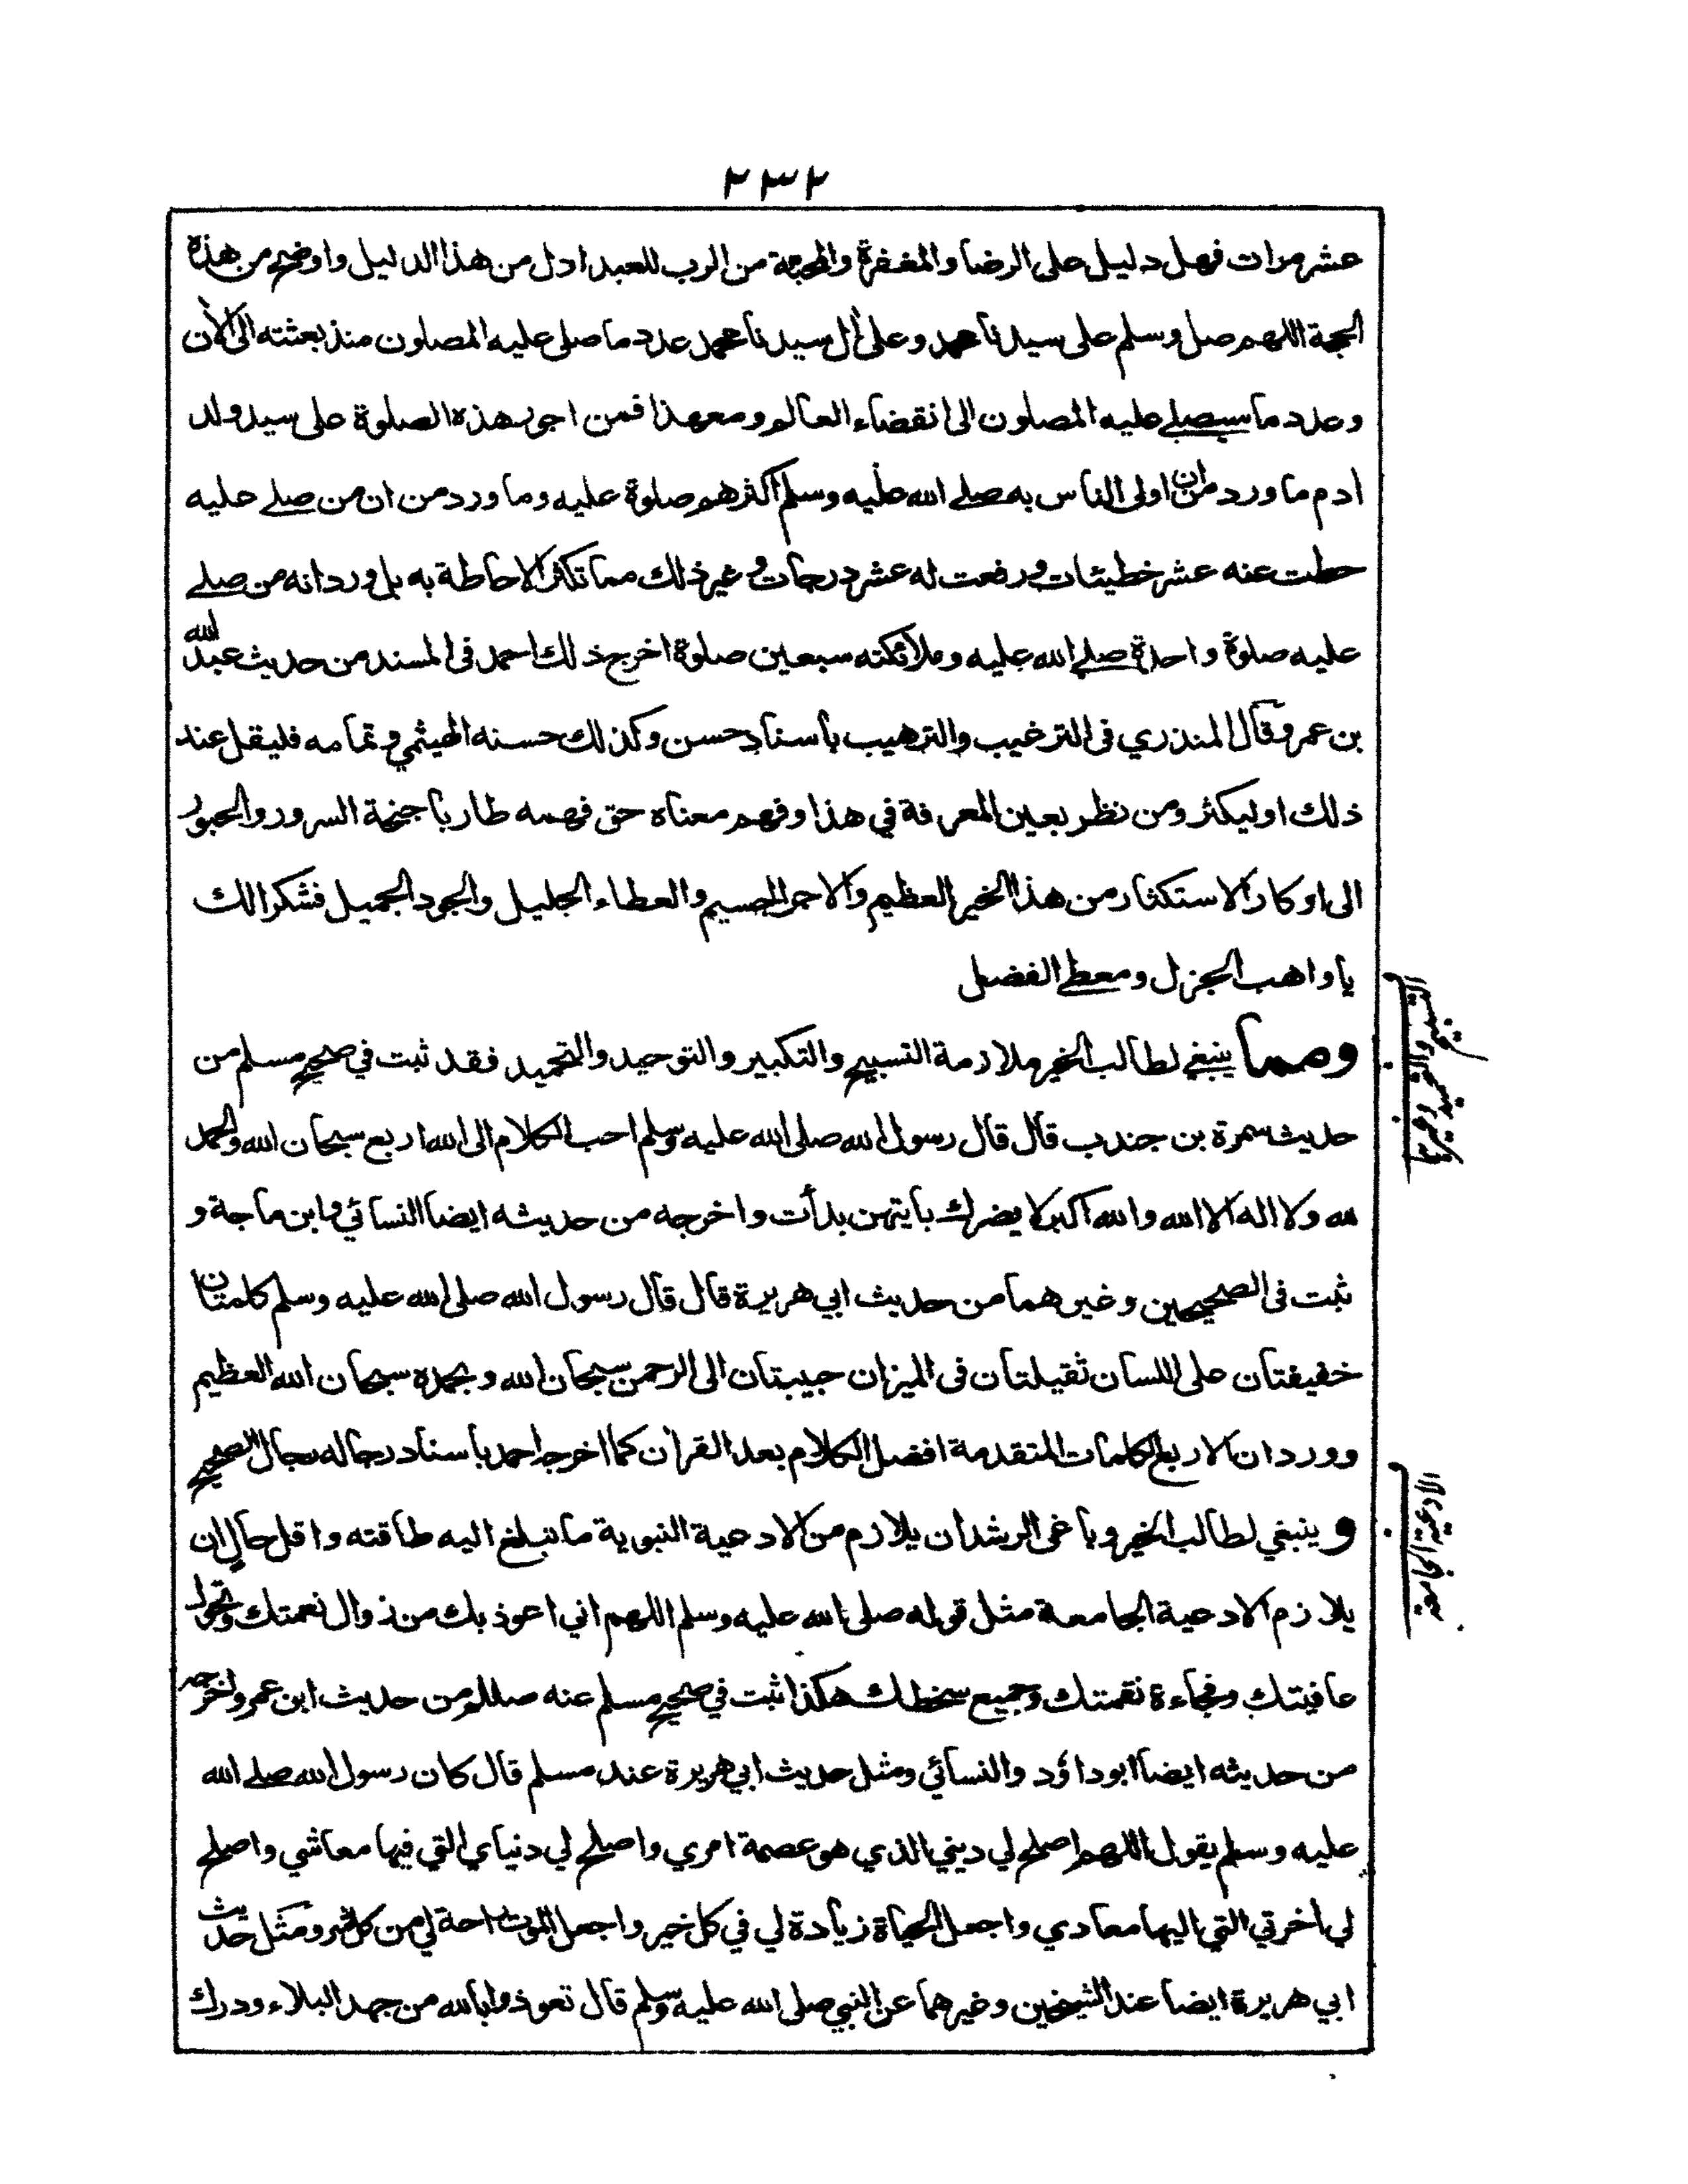 ٢٣٢
عشر مرات فهل دليل على الرضا والمغفرة والمحبة من الرب للعبد ادل من هذا الدليل واوضح من هذه
الحجة اللهم صل وسلم على سيدنا محمد وعلى أل سيدنا محمد عدد ما صلى عليه المصلون منذ بعثته الى الأن
وعدد ما سيصلے عليه المصلون الى انقضاء العالم ومع هذا فمن اجور هذه الصلوة على سيد ولد
ادم ما ورد من ان اولى الناس به صلے الله عليه وسلم اكثرهم صلوة عليه وما ورد من ان من صلے عليه
حطت عنه عشر خطيئات ورفعت له عشر درجات وغير ذلك مما تكثر الاحاطة به بل ورد انه من صلے
عليه صلوة واحدة صلے الله عليه وملائكته سبعين صلوة اخرج ذلك احمد فى المسند من حديث عبد الله
بن عمرو قال المنذري فى الترغيب والترهيب باسناد حسن وكذلك حسنه الهيثمي وتمامه فليقل عند
ذلك او ليكثر ومن نظر بعين المعرفة في هذا وفهم معناه حق فهمه طار باجنحة السرور والحبور
الى اوكار الاستكثار من هذا الخير العظيم والاجر الجسيم والعطاء الجليل والجود الجميل فشكرا لك
يا واهب الجزل ومعطے الفضل
ومما ينبغي لطالب الخير ملازمة التسبيح والتكبير والتوحيد والتحميد فقد ثبت في صحيح مسلم من
حديث سمرة بن جندب قال قال رسول الله صلى الله عليه وسلم احب الكلام الى الله اربع سبحان الله والحمد
لله ولا اله الا الله والله اكبر لا يضرك بايتهن بدأت واخرجه من حديثه ايضا النسائي وابن ماجة و
ثبت فى الصحيحين وغيرهما من حديث ابي هريرة قال قال رسول الله صلى الله عليه وسلم كلمتان
خفيفتان على اللسان ثقيلتان فى الميزان حبيبتان الى الرحمن سبحان الله وبحمده سبحان الله العظيم
وورد ان الاربع الكلمات المتقدمة افضل الكلام بعد القرأن كما اخرجه احمد باسناد رجاله رجال الصحيح
و ينبغي لطالب الخير وباغى الرشد ان يلازم من الادعية النبوية ما تبلغ اليه طاقته واقل حال ان
الادعية الجامعة
يلازم الادعية الجامعة مثل قوله صلى الله عليه وسلم اللهم اني اعوذ بك من زوال نعمتك وتحول
عافيتك وفجاءة نقمتك وجميع سخطك هكذا ثبت في صحيح مسلم عنه صللم من حديث ابن عمر واخرجه
من حديثه ايضا ابو داؤد والنسائي ومثل حديث ابي هريرة عند مسلم قال كان رسول الله صلے الله
عليه وسلم يقول اللهم اصلح لي ديني الذي هو عصمة امري واصلح لي دنياي التي فيها معاشي واصلح
لي أخرتي التي اليها معادي واجعل الحياة زيادة لي في كل خير واجعل الموت راحة لي من كل شر ومثل حديث
ابي هريرة ايضا عند الشيخين وغيرهما عن النبي صلى الله عليه وسلم قال تعوذوا بالله من جهد البلاء ودرك